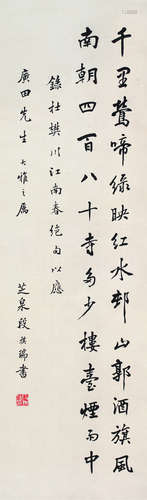 千里鶯啼綠映紅水邨山郭酒旗風
南朝四百八十寺多少樓臺煙雨中
錄杜樊川江南春絕句以應
廣田先生大雅之屬
芝泉段祺瑞書